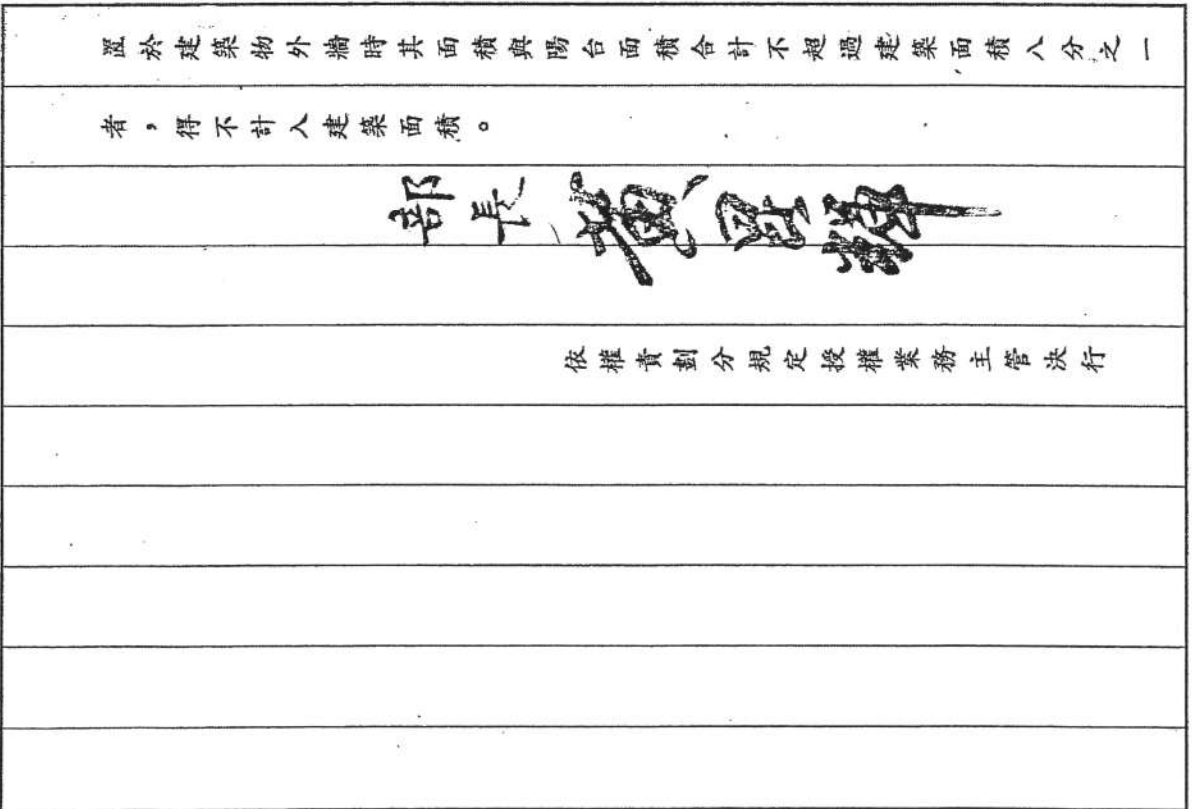 置於建築物外牆時其面積與陽台面積合計不超過建築面積八分之一
者，得不計入建築面積。
部長 黃
依權責劃分規定授權業務主管決行